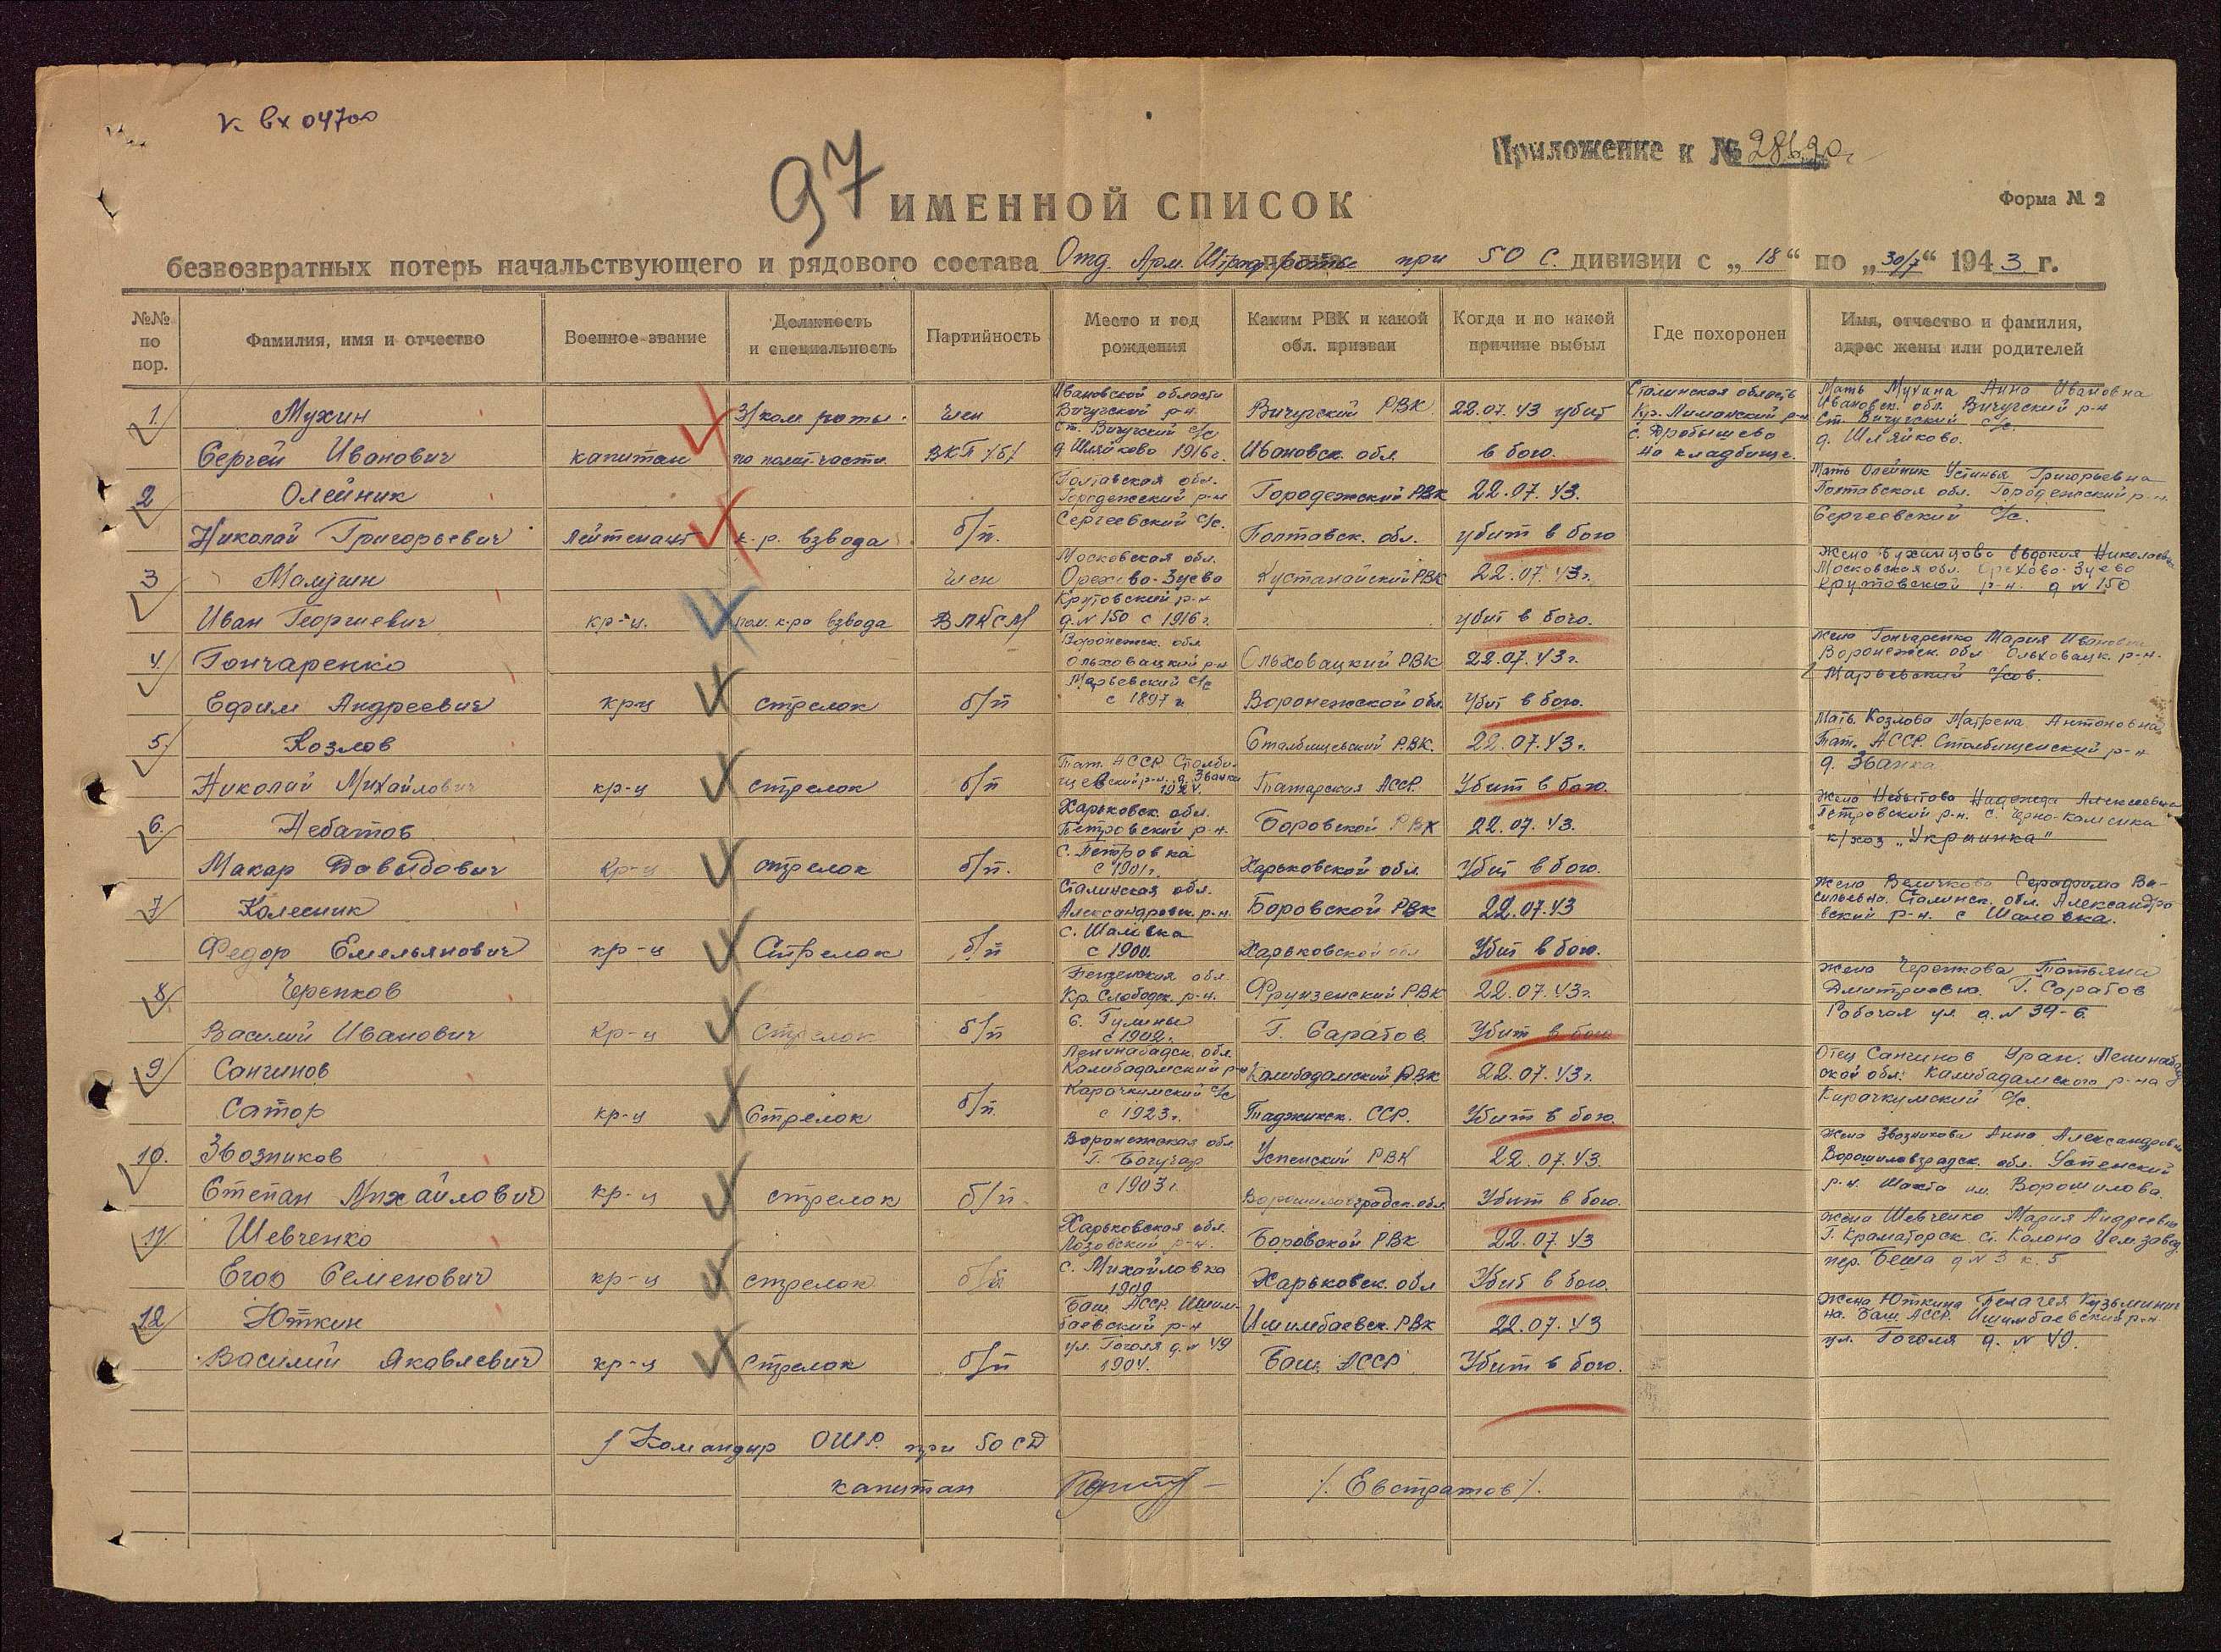 к вх 04700
97
Приложение к № 28620
ИМЕННОЙ СПИСОК
Форма № 2
безвозвратных потерь начальствующего и рядового состава Отд. Арм. Штраф. роты при 50 С. дивизии с „18“ по „30/7“ 1943 г.
№№ по пор.
Фамилия, имя и отчество
Военное звание
Должность и специальность
Партийность
Место и год рождения
Каким РВК и какой обл. призван
Когда и по какой причине выбыл
Где похоронен
Имя, отчество и фамилия, адрес жены или родителей
1. Мухин Сергей Иванович
капитан
З/ком роты по полит-части
Член ВКП/б/
Ивановской области Вичугский р-н Ст. Вичугский с/с д Шляйково 1916 г.
Вичугский РВК Ивановск. обл.
22.07.43 убит в бою.
Сталинская область Кр. Лиманский р-н с. Дробышево на кладбище.
Мать Мухина Анна Ивановна Ивановск. обл. Вичугский р-н Ст. Вичугский с/с. д. Шляйково.
2 Олейник Николай Григорьевич
лейтенант
к-р. взвода
б/п.
Полтавская обл. Городежский р-н Сергеевский с/с.
Городежский РВК Полтавск. обл.
22.07.43. убит в бою
Мать Олейник Устинья Григорьевна Полтавская обл. Городежский р-н. Сергеевский с/с.
3 Иван Георгиевич
кр-ц.
пом. к-ра взвода
Член ВЛКСМ
Московская обл. Орехово-Зуево Крутовский р-н д. N 150 с 1916 г.
Кустанайский РВК
22.07.43г. убит в бою.
Жена Евдокия Николаевна Московская обл. Орехово-Зуево Крутовской р-н. д N 150
4. Гончаренко Ефим Андреевич
кр-ц
стрелок
б/п
Воронежск. обл Ольховацкий р-н Марьевский с/с с 1897 г.
Ольховацкий РВК Воронежской обл.
22.07.43г. Убит в бою.
Жена Гончаренко Мария Ивановна Воронежск. обл Ольховацк. р-н. Марьевский с/сов.
5. Козлов Николай Михайлович
кр-ц
стрелок
б/п
Тат. АССР. Столбищевский р-н. д. Званка 1924.
Столбищевский РВК. Татарская АССР.
22.07.43г. Убит в бою.
Мать Козлова Матрена Антоновна Тат. АССР. Столбищенский р-н д. Званка
6. Небатов Макар Давыдович
кр-ц
стрелок
б/п.
Харьковск. обл. Петровский р-н. с. Петровка с 1901г.
Боровской РВК Харьковской обл.
22.07.43. Убит в бою.
Жена Надежда Алексеевна Петровский р-н. с. Черно-Каменка к/хоз „Украинка“
7 Колесник Федор Емельянович
кр-ц
Стрелок
б/п
Сталинская обл. Александровск. р-н. с. Шаловка с 1900.
Боровской РВК Харьковской обл
22.07.43 Убит в бою.
Жена Величкова Серафима Васильевна. Сталинск. обл. Александровский р-н. с Шаловка.
8. Черепков Василий Иванович
кр-ц
Стрелок
б/п
Пензенская обл. Кр. Слободск. р-н. с. Гулины с 1902.
Фрунзенский РВК Г. Саратов
22.07.43г. Убит в бою
Жена Черепкова Татьяна Дмитриевна. Г. Саратов Рабочая ул д. N 39-6.
9 Сангинов Сатор
кр-ц
Стрелок
б/п.
Ленинабадск. обл. Канибадамский р-н Карачкумский с/с с 1923г.
Канибадамский РВК Таджикск. ССР.
22.07.43г. Убит в бою.
Отец Сангинов Уран. Ленинабадской обл. Канибадамского р-на Карачкумский с/с.
10. Звозников Степан Михайлович
кр-ц
стрелок
б/п.
Воронежская обл Г. Богучар с 1903 г.
Успенский РВК Ворошиловградск. обл
22.07.43. Убит в бою.
Жена Звозникова Анна Александровна Ворошиловградск. обл. Успенский р-н. Шахта им. Ворошилова.
11. Шевченко Егор Семенович
кр-ц
стрелок
б/п.
Харьковская обл. Лозовский р-н. с. Михайловка 1909
Боровской РВК Харьковск. обл
22.07.43 Убит в бою.
Жена Шевченко Мария Андреевна Г. Краматорск Цемзавод пер. Беша д N 3 к. 5
12 Юткин Василий Яковлевич
кр-ц
Стрелок
б/п
Баш. АССР. Ишимбаевский р-н ул. Гоголя д. N 49 1904.
Ишимбаевск. РВК Баш. АССР
22.07.43 Убит в бою.
Жена Юткина Пелагея Кузьминична. Баш. АССР. Ишимбаевский р-н. ул. Гоголя д. N 49.
Командир ОШР. при 50 СД
капитан /. Евстратов /.